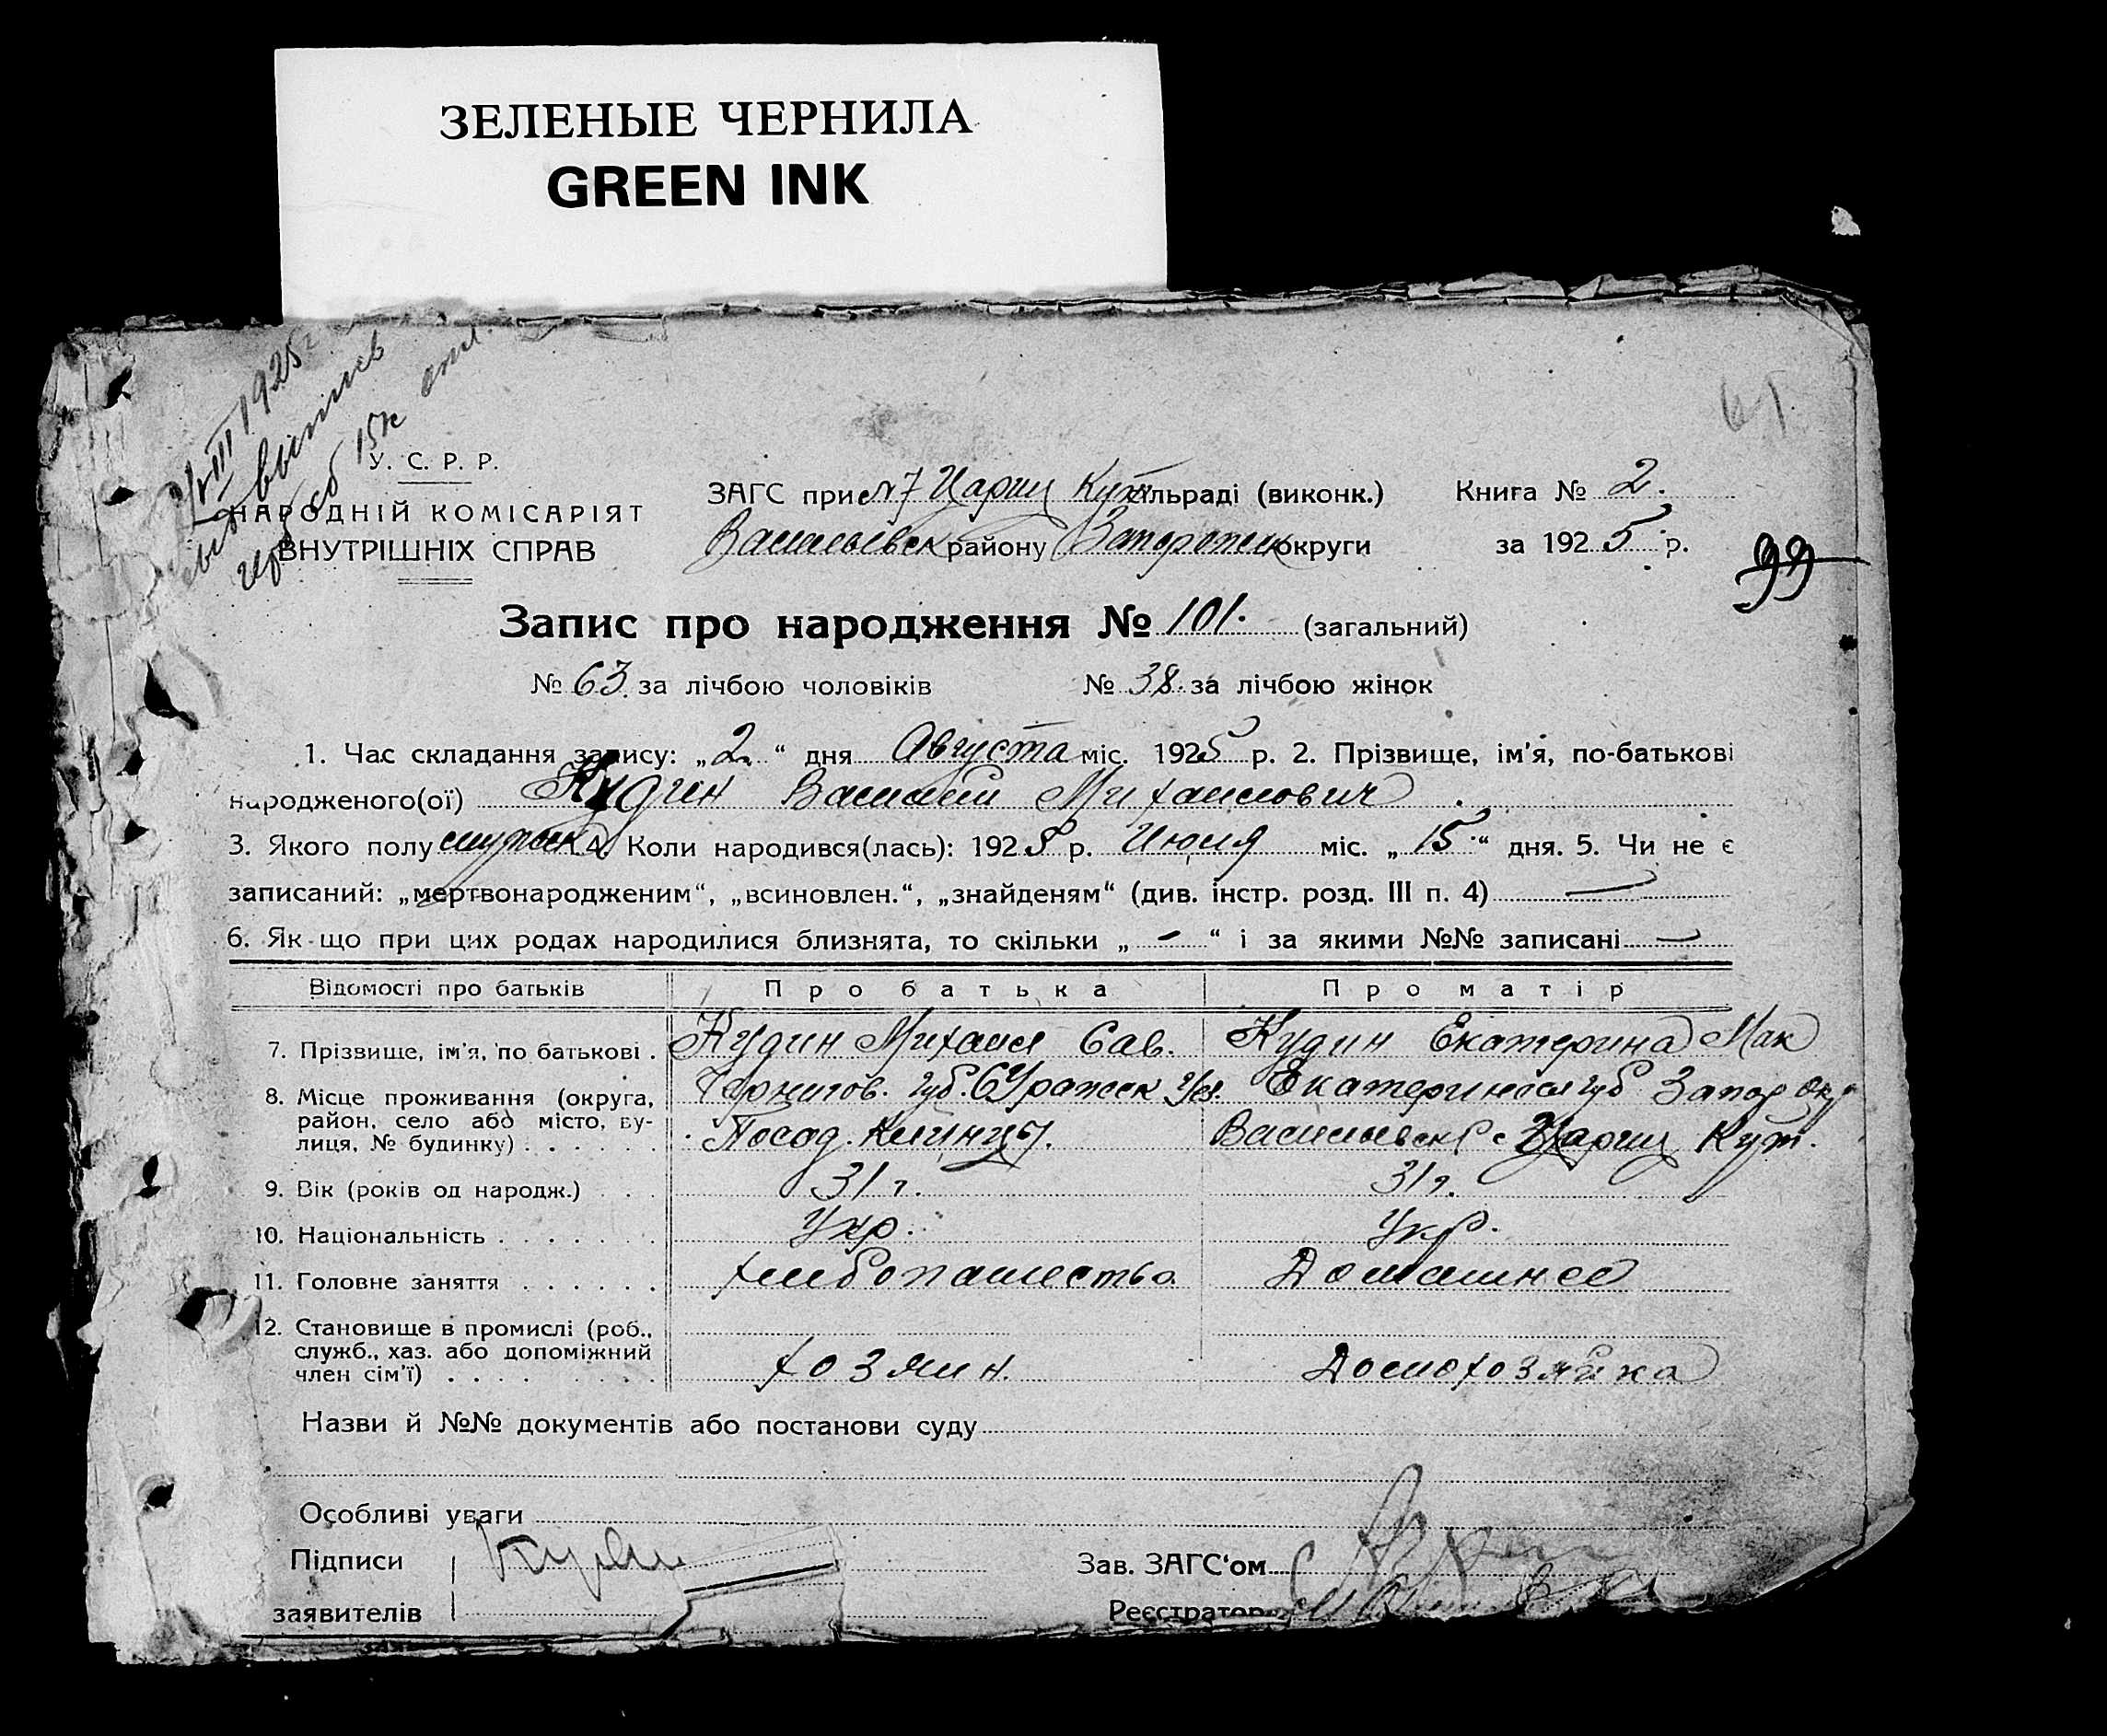 ЗЕЛЕНЫЕ ЧЕРНИЛА
GREEN INK
III 1925 г
выпись
15 к
У. С. Р. Р.
НАРОДНІЙ КОМІСАРІЯТ
ВНУТРІШНІХ СПРАВ
ЗАГС при Цариц Кут сільраді (виконк.)
Васильевск району Запорожск округи
Книга № 2.
за 1925 р.
99
Запис про народження № 101. (загальний)
№ 63 за лічбою чоловіків № 38. за лічбою жінок
1. Час складання запису: „2.“ дня Августа міс. 1925 р. 2. Прізвище, ім'я, по-батькові
народженого(ої) Кудин Василий Михаилович
3. Якого полу мужск 4. Коли народився(лась): 1925 р. Июля міс. „15“ дня. 5. Чи не є
записаний: „мертвонародженим“, „всиновлен.“, „знайденям“ (див. інстр. розд. III п. 4) —
6. Як-що при цих родах народилися близнята, то скільки „ - “ і за якими №№ записані —
Відомості про батьків Про батька Про матір
7. Прізвище, ім'я, по батькові . Кудин Михаил Сав. Кудин Екатерина Мак
8. Місце проживання (округа, район, село або місто, ву- лиця, № будинку) . . . . . . Чернигов. губ. Суражск Уез. Посад. Клинцы. Екатеринослгуб Запор окр Васильевск Р с Цариц Кут.
9. Вік (років од народж.) . . . 31 г. 31 г.
10. Національність . . . . . . . Укр. Укр.
11. Головне заняття . . . . . . Хлебопашество. Домашнее
12. Становище в промислі (роб., служб., хаз. або допоміжний член сім'ї) . . . . . . . . . Хозяин. Домохозяйка
Назви й №№ документів або постанови суду
Особливі уваги
Підписи Зав. ЗАГС'ом
заявителів Реєстратор